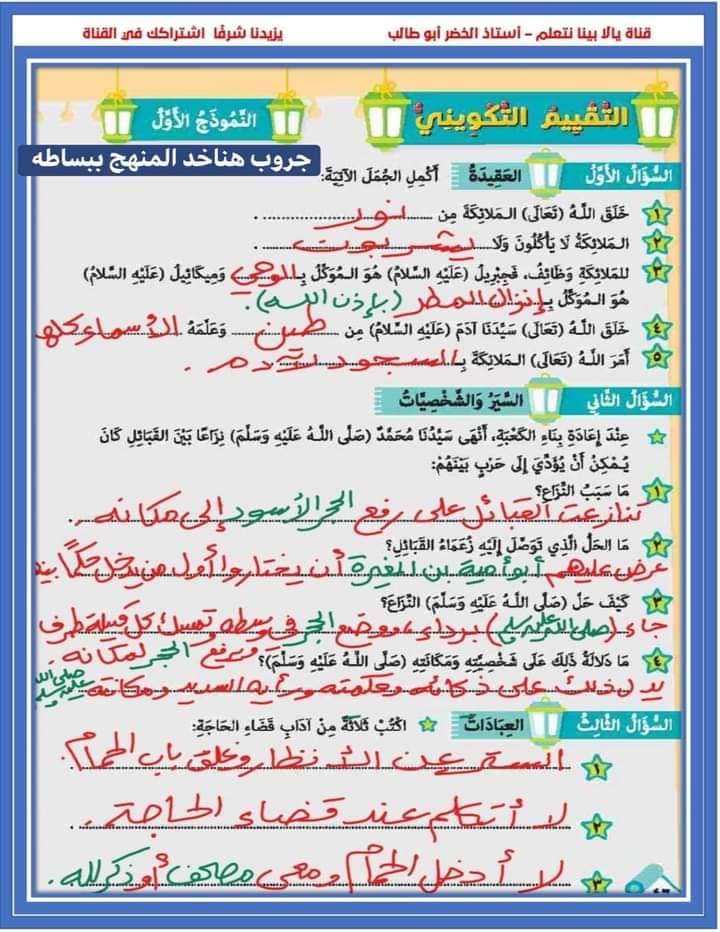 قناة يالا بينا نتعلم - أستاذ الخضر أبو طالب
يزيدنا شرفًا اشتراكك في القناة
التَّقْيِيمُ التَّكْوِينِيُّ
النَّمُوذَجُ الأَوَّلُ
جروب هناخد المنهج ببساطه
السُّؤَالُ الأَوَّلُ العَقِيدَةُ أَكْمِلِ الجُمَلَ الآتِيَةَ:
١ خَلَقَ اللَّهُ (تَعَالَى) المَلَائِكَةَ مِن نور
٢ المَلَائِكَةُ لَا يَأْكُلُونَ وَلَا يشربون
٣ لِلمَلَائِكَةِ وَظَائِفُ، فَجِبْرِيلُ (عَلَيْهِ السَّلَامُ) هُوَ المُوَكَّلُ بِـ الوحي وَمِيكَائِيلُ (عَلَيْهِ السَّلَامُ)
هُوَ المُوَكَّلُ بِـ إنزال المطر (بإذن الله).
٤ خَلَقَ اللَّهُ (تَعَالَى) سَيِّدَنَا آدَمَ (عَلَيْهِ السَّلَامُ) مِن طين وَعَلَّمَهُ الأسماء كلها
٥ أَمَرَ اللَّهُ (تَعَالَى) المَلَائِكَةَ بِـ السجود لآدم.
السُّؤَالُ الثَّانِي السِّيَرُ وَالشَّخْصِيَّاتُ
عِنْدَ إِعَادَةِ بِنَاءِ الكَعْبَةِ، أَنْهَى سَيِّدُنَا مُحَمَّدٌ (صَلَّى اللَّهُ عَلَيْهِ وَسَلَّمَ) نِزَاعًا بَيْنَ القَبَائِلِ كَانَ
يُمْكِنُ أَنْ يُؤَدِّيَ إِلَى حَرْبٍ بَيْنَهُمْ:
١ مَا سَبَبُ النِّزَاعِ؟
تنازعت القبائل على رفع الحجر الأسود إلى مكانه.
٢ مَا الحَلُّ الَّذِي تَوَصَّلَ إِلَيْهِ زُعَمَاءُ القَبَائِلِ؟
عرض عليهم أبو أمية بن المغيرة أن يختاروا أول من يدخل حكمًا
٣ كَيْفَ حَلَّ (صَلَّى اللَّهُ عَلَيْهِ وَسَلَّمَ) النِّزَاعَ؟
جاء (صلى الله عليه وسلم) برداء، ووضع الحجر في وسطه وتمسك كل قبيلة طرف
ورفع الحجر لمكانه.
٤ مَا دَلَالَةُ ذَلِكَ عَلَى شَخْصِيَّتِهِ وَمَكَانَتِهِ (صَلَّى اللَّهُ عَلَيْهِ وَسَلَّمَ)؟
يدل ذلك على ذكائه وحكمته ورأيه السديد ومكانته صلى الله عليه وسلم
السُّؤَالُ الثَّالِثُ العِبَادَاتُ اكْتُبْ ثَلَاثَةً مِنْ آدَابِ قَضَاءِ الحَاجَةِ:
١ الستر عن الأنظار وغلق باب الحمام.
٢ لا أتكلم عند قضاء الحاجة.
٣ لا أدخل الحمام ومعي مصحف أو ذكر لله.